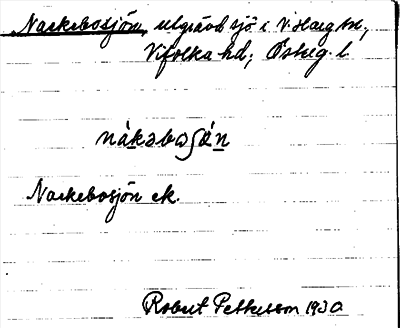 Nackebosjön, utgrävd sjö i V. Harg sn,
Vifolka hd, Österg. l.
nákəbəʃə́n
Nackebosjön ek.
Robert Pettersson 1930